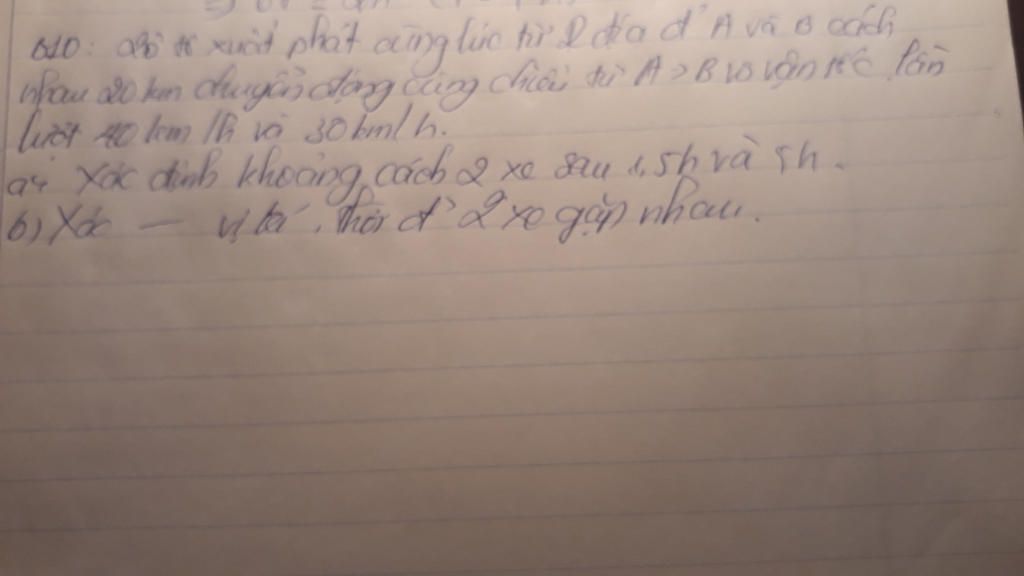 B10: ôtô xuất phát cùng lúc từ 2 địa đ' A và B cách
nhau 20 km chuyển động cùng chiều từ A > B vs vận tốc lần
lượt 40 km/h và 30 km/h.
a, Xác định khoảng cách 2 xe sau 1,5h và 5h.
b) Xác — vị trí, thời đ' 2 xe gặp nhau.